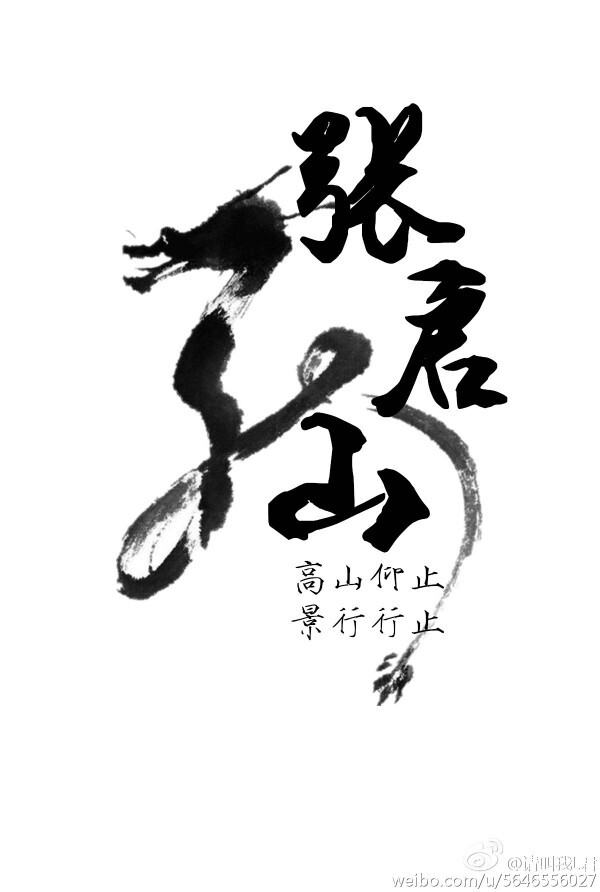 张启山
高山仰止
景行行止
@请叫我
weibo.com/u/5646556027